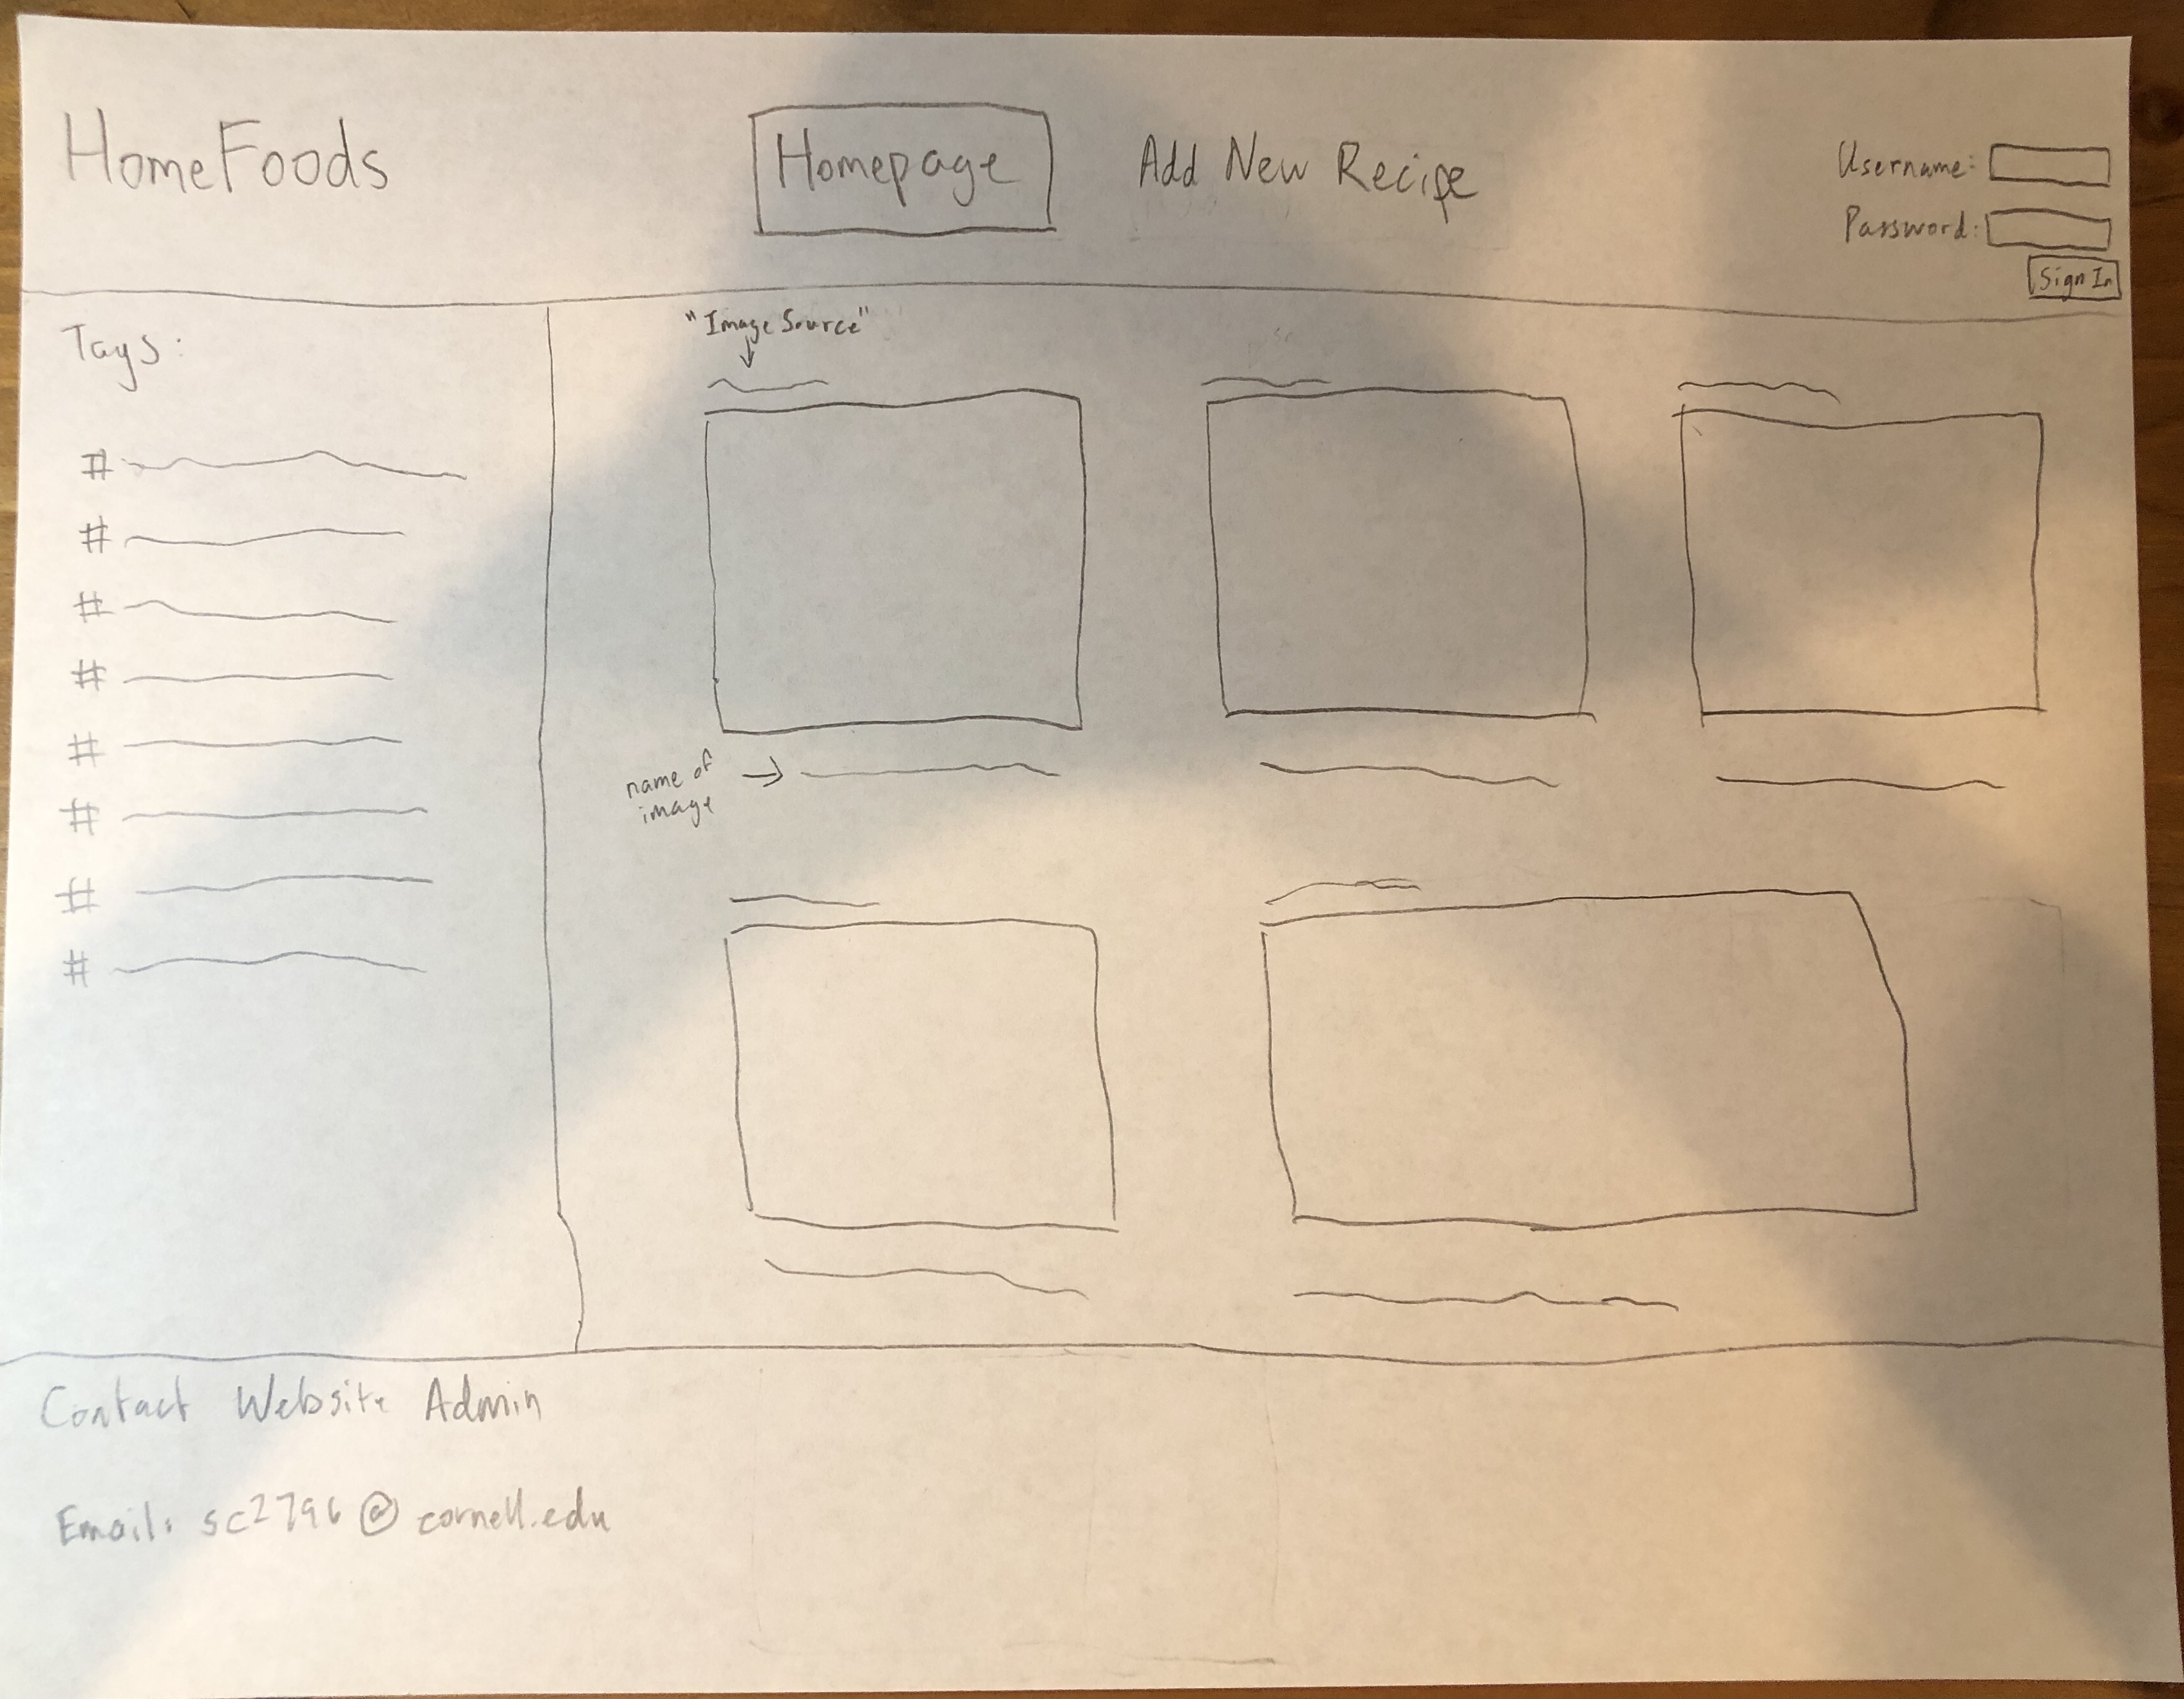 HomeFoods
Homepage
Add New Recipe
Username:
Password:
Sign In
Tags:
"Image Source"
#
#
#
#
#
#
#
#
name of
image
Contact Website Admin
Email: sc2796@cornell.edu